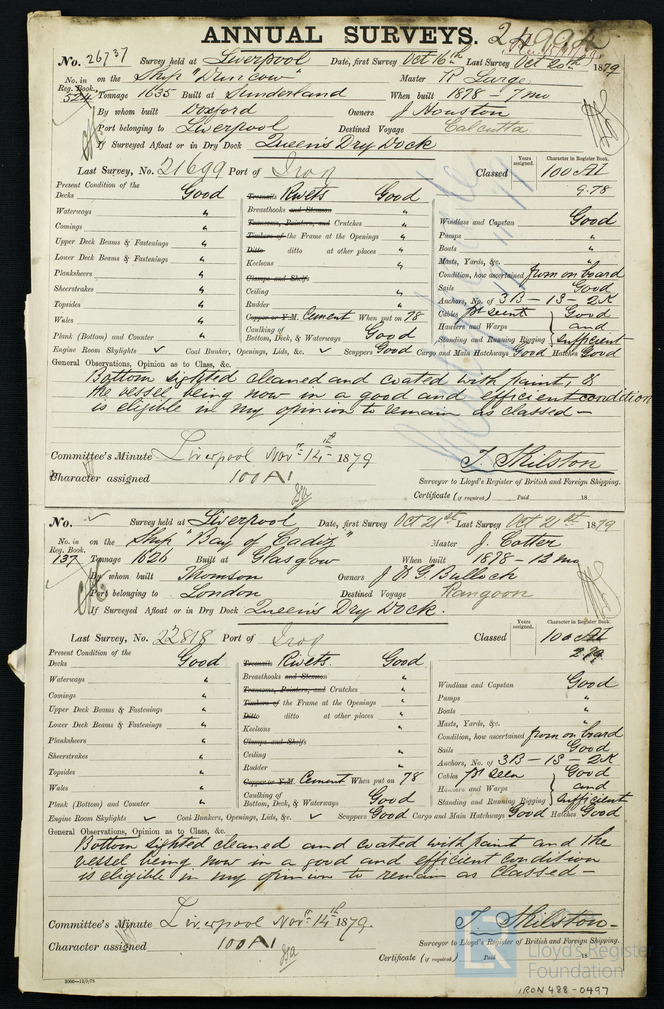 ANNUAL SURVEYS. 24994
No. 26737 Survey held at Liverpool Date, first Survey Oct 16th Last Survey Oct 20th 1879
No. in Reg. Book. 524 on the Ship "Duncow" Master R. Large
Tonnage 1635 Built at Sunderland When built 1878 - 7 mo
By whom built Doxford Owners J Houston
Port belonging to Liverpool Destined Voyage Calcutta
If Surveyed Afloat or in Dry Dock Queen's Dry Dock
Last Survey, No. 21699 Port of Iron Classed Years assigned. Character in Register Book. 100 A1
9.78
Present Condition of the
Decks Good Treenails Rivets Good
Waterways " Breasthooks and Stemson " Windlass and Capstan Good
Comings " Transoms, Pointers, and Crutches " Pumps "
Upper Deck Beams & Fastenings " Timbers of the Frame at the Openings " Boats "
Lower Deck Beams & Fastenings " Ditto ditto at other places " Masts, Yards, &c. "
Planksheers " Keelsons " Condition, how ascertained from on board
Sheerstrakes " Clamps and Shelfs Sails Good
Topsides " Ceiling " Anchors, No. of 3B - 1S - 2K
Wales " Rudder " Cables Good
Copper or Y.M. Cement When put on 78 Hawsers and Warps and
Plank (Bottom) and Counter " Caulking of Bottom, Deck, & Waterways Good Standing and Running Rigging sufficient
Engine Room Skylights ✓ Coal Bunker, Openings, Lids, &c. ✓ Scuppers Good Cargo and Main Hatchways Good Hatches Good
General Observations, Opinion as to Class, &c.
Bottom sighted cleaned and coated with paint, &
the vessel being now in a good and efficient condition
is eligible in my opinion to remain as classed -
Committee's Minute Liverpool Novr. 14th 1879
Character assigned 100 A1
T. Skilston
Surveyor to Lloyd's Register of British and Foreign Shipping.
Certificate (if required) Paid 18
No. ✓ Survey held at Liverpool Date, first Survey Oct 21st Last Survey Oct 21st 1879
No. in Reg. Book. 137 on the Ship "Bay of Cadiz" Master J. Cotter
Tonnage 1626 Built at Glasgow When built 1878 - 12 mo
By whom built Thomson Owners J & G Bulloch
Port belonging to London Destined Voyage Rangoon
If Surveyed Afloat or in Dry Dock Queen's Dry Dock.
Last Survey, No. 22818 Port of Iron Classed Years assigned. Character in Register Book. 100 A1
2.79
Present Condition of the
Decks Good Treenails Rivets. Good
Waterways " Breasthooks and Stemson " Windlass and Capstan Good
Comings " Transoms, Pointers, and Crutches " Pumps "
Upper Deck Beams & Fastenings " Timbers of the Frame at the Openings " Boats "
Lower Deck Beams & Fastenings " Ditto ditto at other places " Masts, Yards, &c. "
Planksheers " Keelsons " Condition, how ascertained from on board
Sheerstrakes " Clamps and Shelfs Sails Good
Topsides " Ceiling " Anchors, No. of 3B - 1S - 2K
Wales " Rudder " Cables Good
Copper or Y.M. Cement When put on 78 Hawsers and Warps and
Plank (Bottom) and Counter " Caulking of Bottom, Deck, & Waterways Good Standing and Running Rigging sufficient
Engine Room Skylights ✓ Coal Bunkers, Openings, Lids, &c. ✓ Scuppers Good Cargo and Main Hatchways Good Hatches Good
General Observations, Opinion as to Class, &c.
Bottom sighted cleaned and coated with paint and the
vessel being now in a good and efficient condition
is eligible in my opinion to remain as classed -
Committee's Minute Liverpool Novr. 14th 1879.
Character assigned 100 A1
T. Skilston
Surveyor to Lloyd's Register of British and Foreign Shipping.
Certificate (if required) Paid 18
Lloyd's Register
Foundation
2000-12/9/78
IRON 488-0497